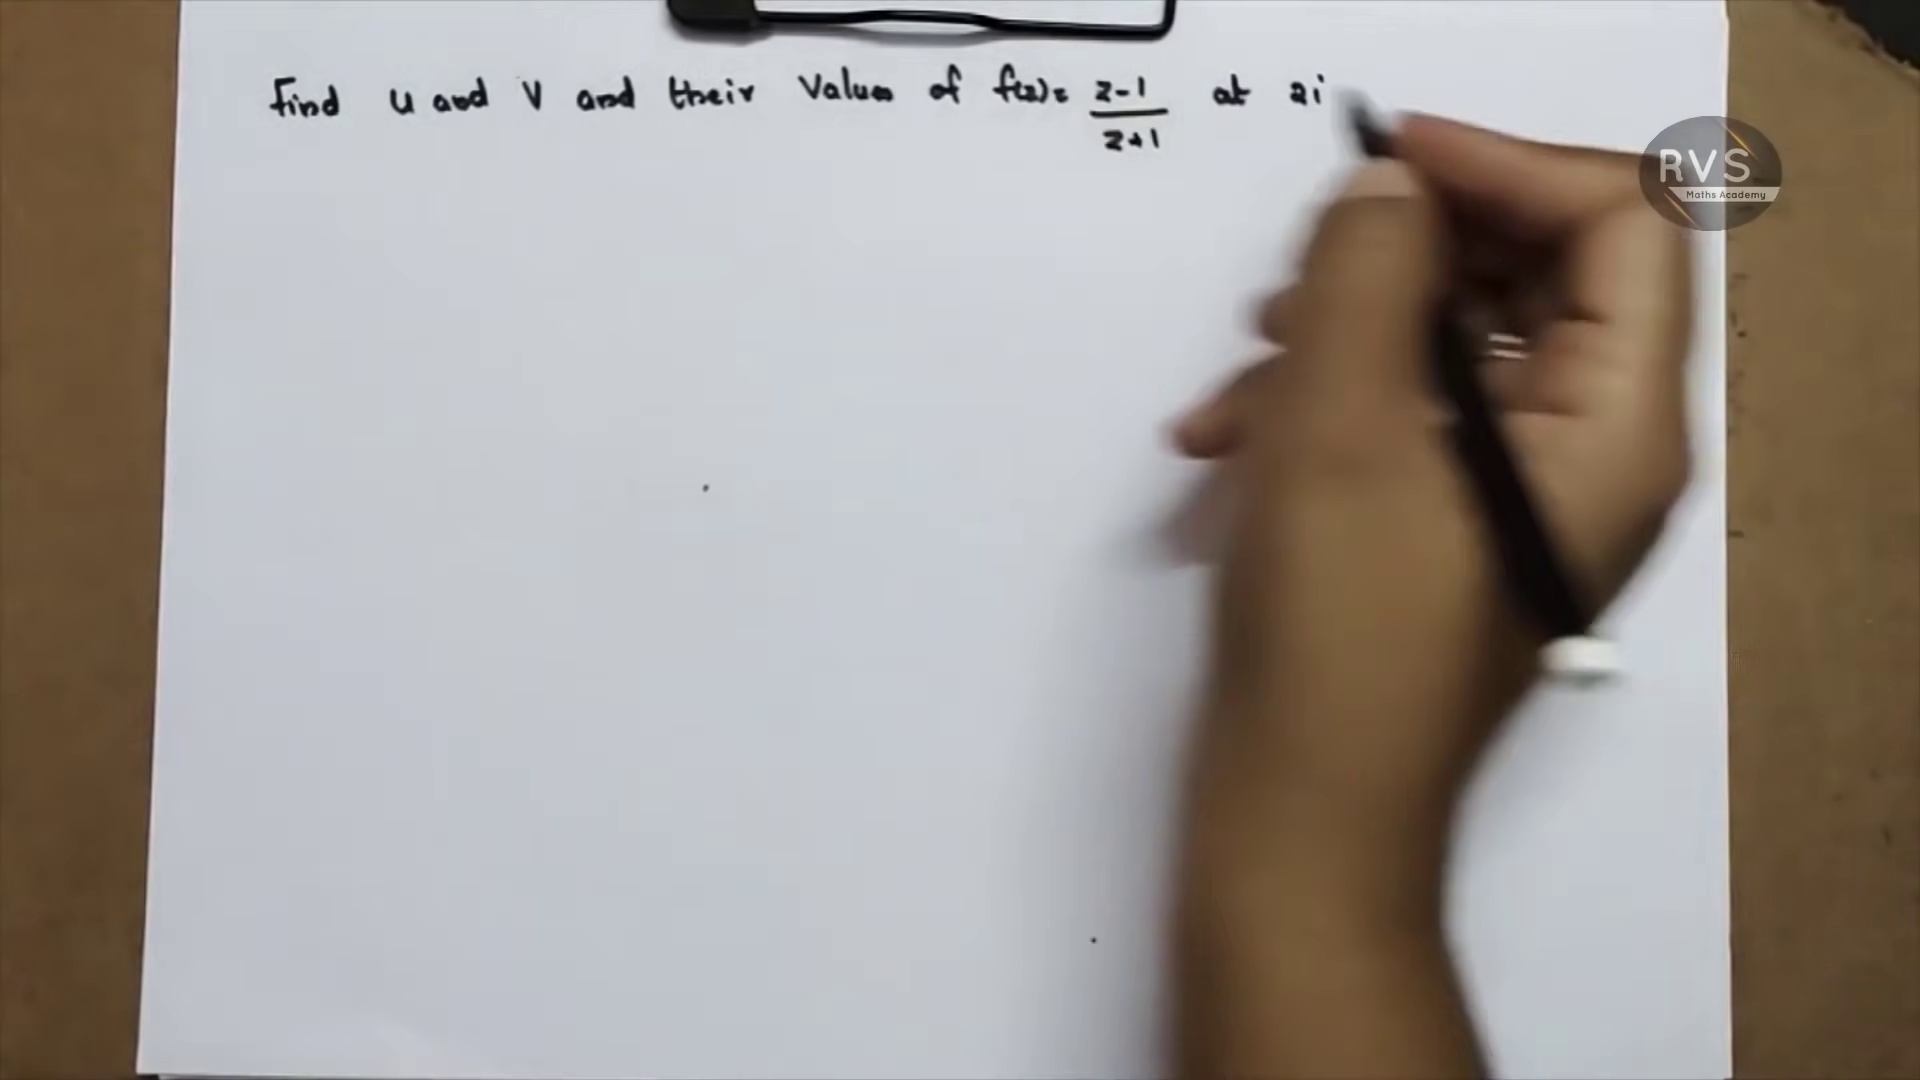 Find u and v and their values of f(z)= z-1 / z+1 at 2i
RVS
Maths Academy